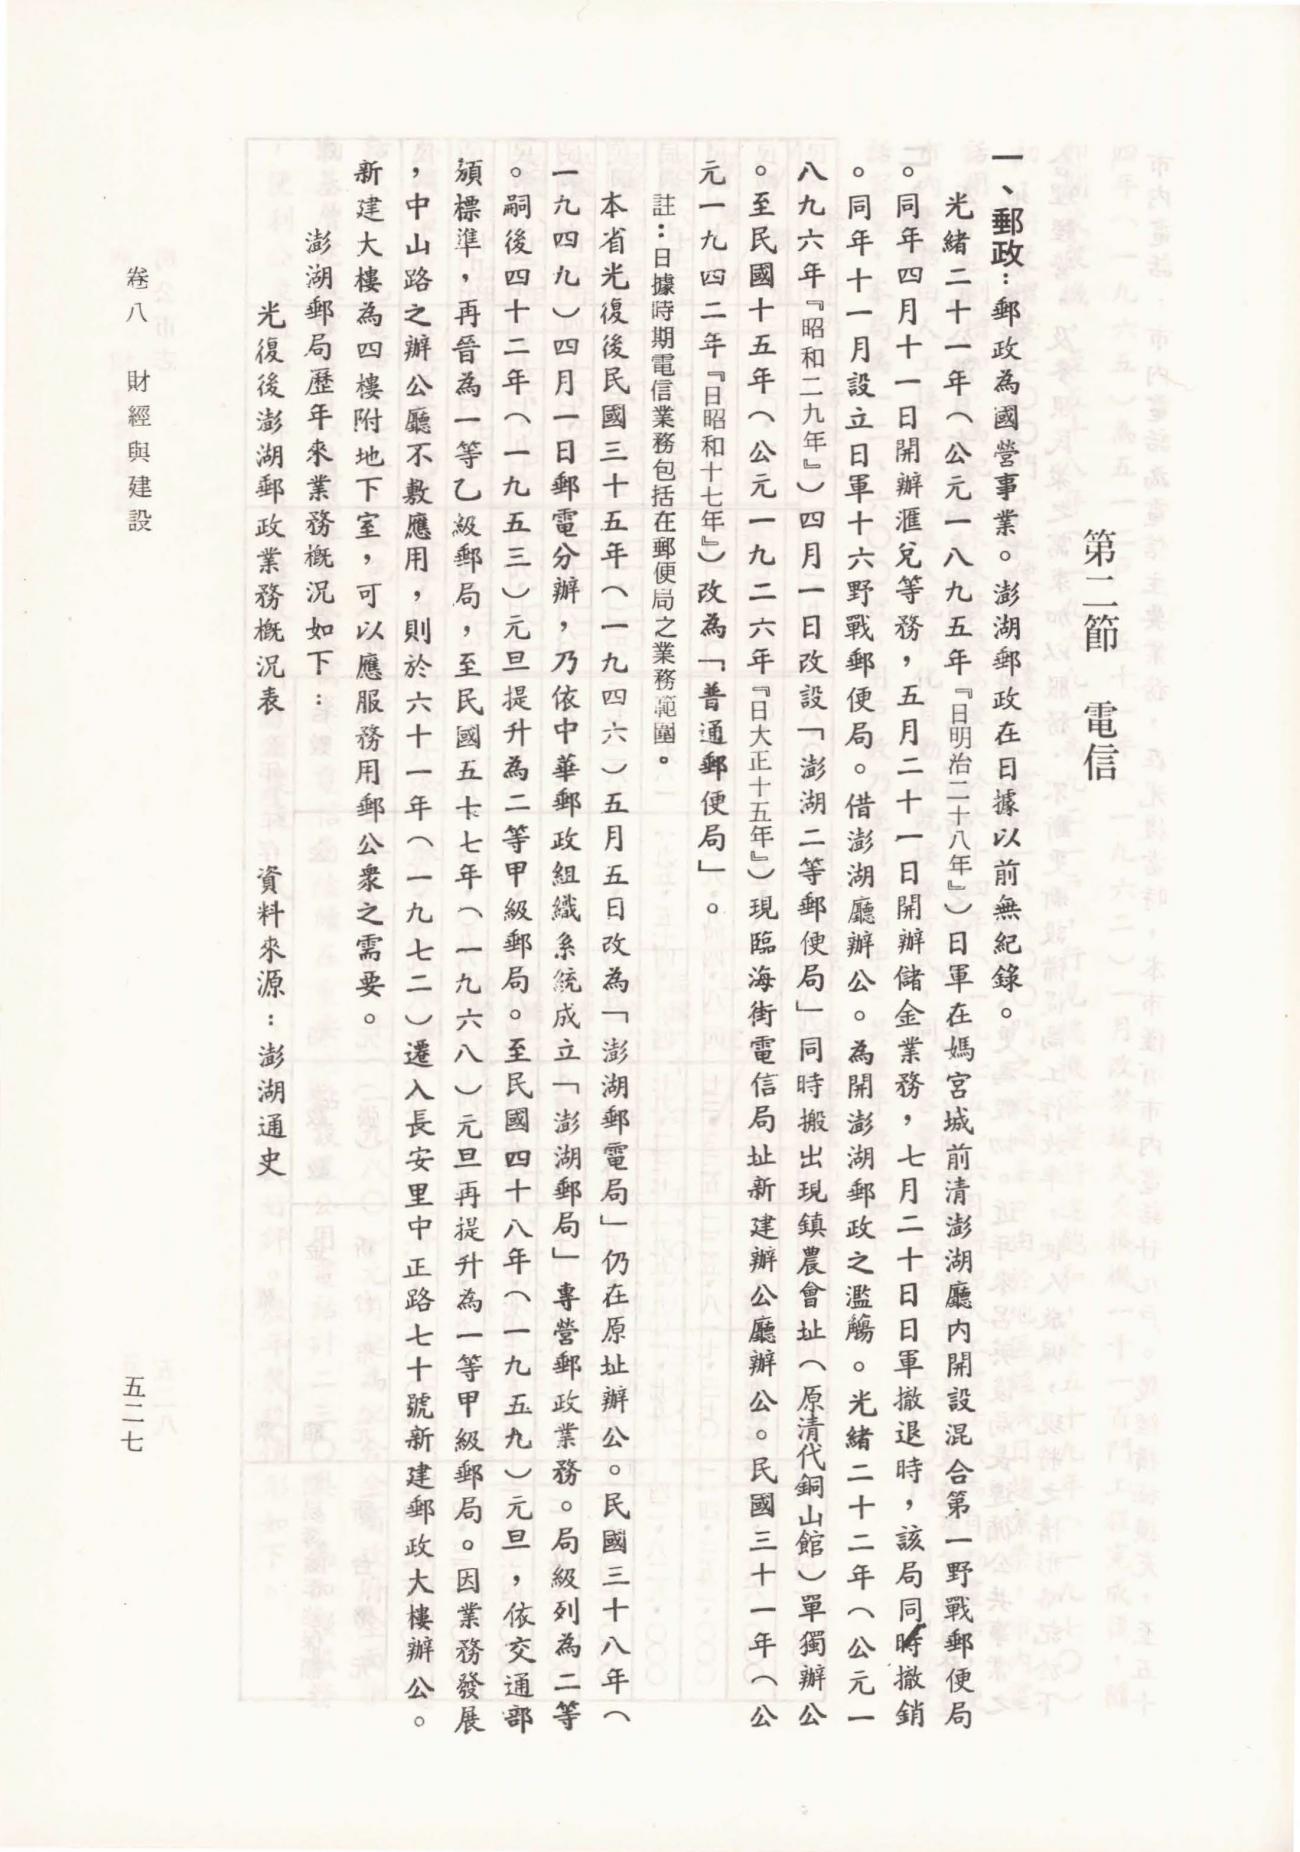 第二節　電信
一、郵政：郵政為國營事業。澎湖郵政在日據以前無紀錄。
光緒二十一年（公元一八九五年『日明治二十八年』）日軍在媽宮城前清澎湖廳內開設混合第一野戰郵便局
。同年四月十一日開辦滙兌等務，五月二十一日開辦儲金業務，七月二十日日軍撤退時，該局同時撤銷
。同年十一月設立日軍十六野戰郵便局。借澎湖廳辦公。為開澎湖郵政之濫觴。光緒二十二年（公元一
八九六年『昭和二九年』）四月一日改設「澎湖二等郵便局」同時搬出現鎮農會址（原清代銅山館）單獨辦公
。至民國十五年（公元一九二六年『日大正十五年』）現臨海街電信局址新建辦公廳辦公。民國三十一年（公
元一九四二年『日昭和十七年』）改為「普通郵便局」。
註：日據時期電信業務包括在郵便局之業務範圍。
本省光復後民國三十五年（一九四六）五月五日改為「澎湖郵電局」仍在原址辦公。民國三十八年（
一九四九）四月一日郵電分辦，乃依中華郵政組織系統成立「澎湖郵局」專營郵政業務。局級列為二等
。嗣後四十二年（一九五三）元旦提升為二等甲級郵局。至民國四十八年（一九五九）元旦，依交通部
頒標準，再晉為一等乙級郵局，至民國五十七年（一九六八）元旦再提升為一等甲級郵局。因業務發展
，中山路之辦公廳不敷應用，則於六十一年（一九七二）遷入長安里中正路七十號新建郵政大樓辦公。
新建大樓為四樓附地下室，可以應服務用郵公衆之需要。
澎湖郵局歷年來業務概況如下：
光復後澎湖郵政業務概況表　資料來源：澎湖通史
卷八　財經與建設
五二七